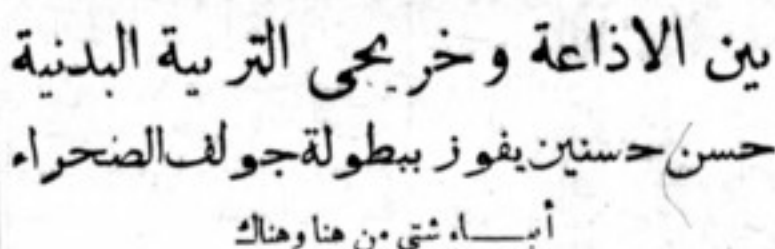 بين الاذاعة وخريجى التربية البدنية
حسن حسنين يفوز ببطولة جولف الصحراء
أنباء شتى من هنا وهناك